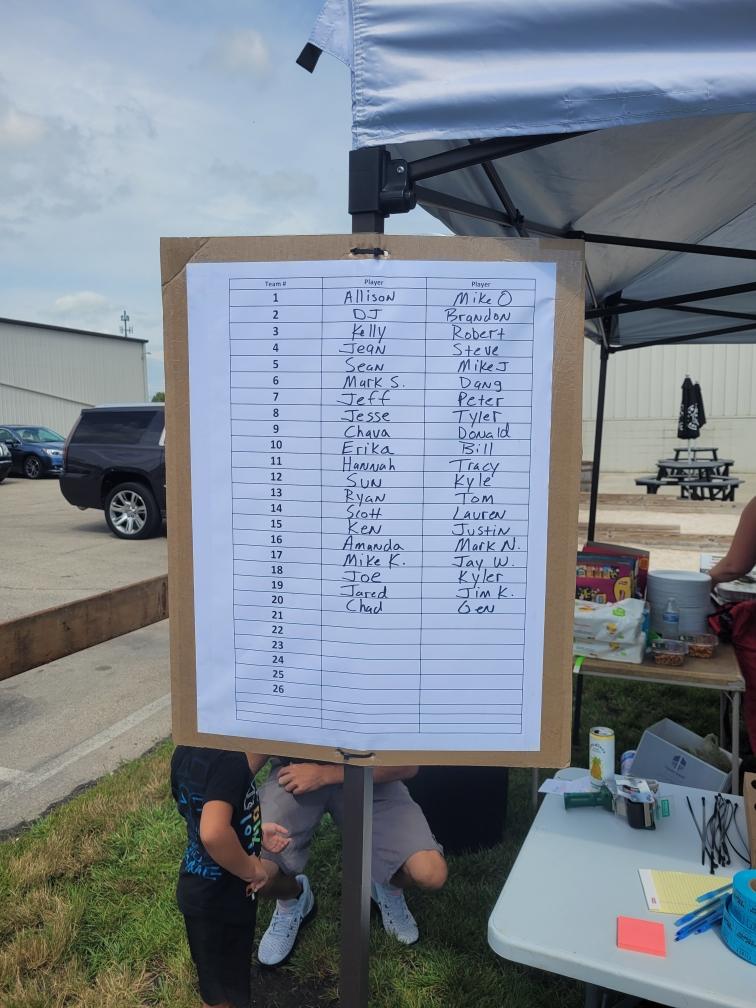 Team # Player Player
1 Allison Mike O
2 DJ Brandon
3 Kelly Robert
4 Jean Steve
5 Sean Mike J
6 Mark S. Dang
7 Jeff Peter
8 Jesse Tyler
9 Chava Donald
10 Erika Bill
11 Hannah Tracy
12 Sun Kyle
13 Ryan Tom
14 Scott Lauren
15 Ken Justin
16 Amanda Mark N.
17 Mike K. Jay W.
18 Joe Kyler
19 Jared Jim K.
20 Chad Gen
21
22
23
24
25
26